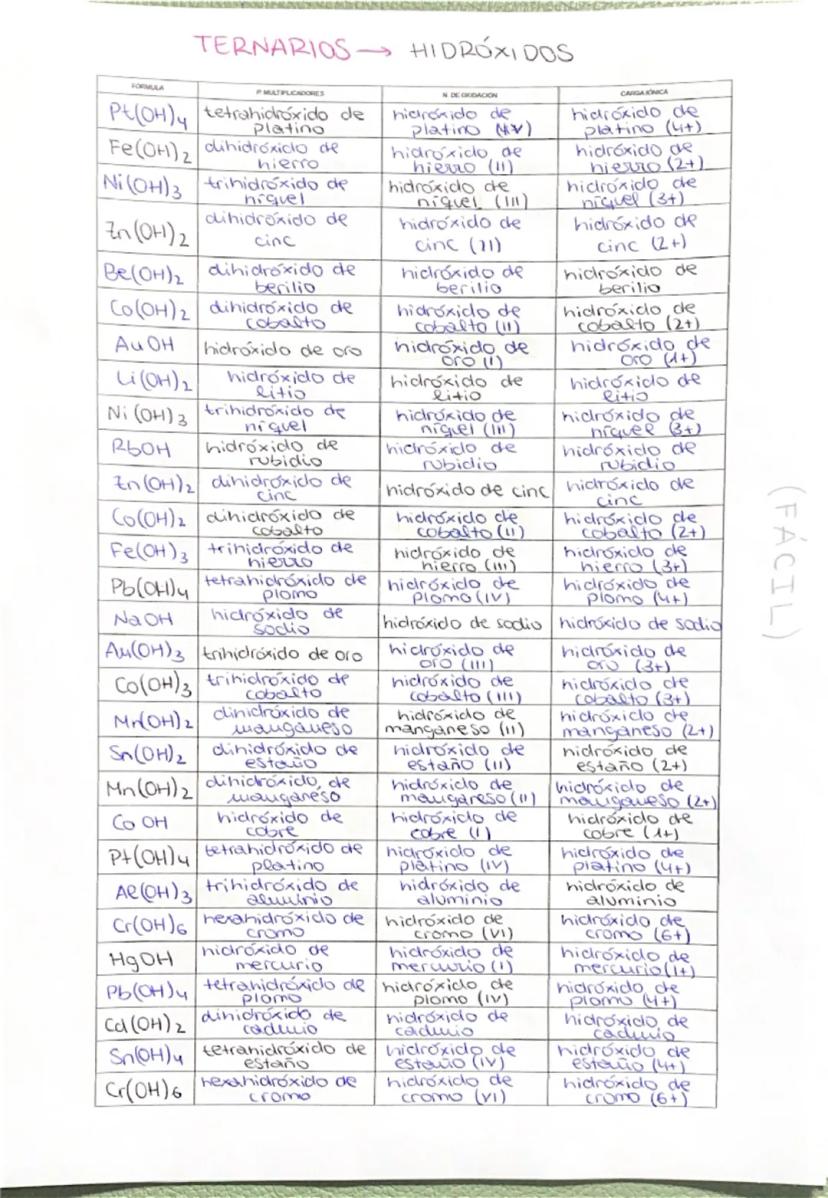 TERNARIOS → HIDRÓXIDOS
FÓRMULA P. MULTIPLICADORES N. DE OXIDACIÓN CARGA IÓNICA
Pt(OH)4 tetrahidróxido de platino hidróxido de platino (IV) hidróxido de platino (4+)
Fe(OH)2 dihidróxido de hierro hidróxido de hierro (II) hidróxido de hierro (2+)
Ni(OH)3 trihidróxido de níquel hidróxido de níquel (III) hidróxido de níquel (3+)
Zn(OH)2 dihidróxido de cinc hidróxido de cinc (II) hidróxido de cinc (2+)
Be(OH)2 dihidróxido de berilio hidróxido de berilio hidróxido de berilio
Co(OH)2 dihidróxido de cobalto hidróxido de cobalto (II) hidróxido de cobalto (2+)
AuOH hidróxido de oro hidróxido de oro (I) hidróxido de oro (1+)
Li(OH)2 hidróxido de litio hidróxido de litio hidróxido de litio
Ni(OH)3 trihidróxido de níquel hidróxido de níquel (III) hidróxido de níquel (3+)
RbOH hidróxido de rubidio hidróxido de rubidio hidróxido de rubidio
Zn(OH)2 dihidróxido de cinc hidróxido de cinc hidróxido de cinc
Co(OH)2 dihidróxido de cobalto hidróxido de cobalto (II) hidróxido de cobalto (2+)
Fe(OH)3 trihidróxido de hierro hidróxido de hierro (III) hidróxido de hierro (3+)
Pb(OH)4 tetrahidróxido de plomo hidróxido de plomo (IV) hidróxido de plomo (4+)
NaOH hidróxido de sodio hidróxido de sodio hidróxido de sodio
Au(OH)3 trihidróxido de oro hidróxido de oro (III) hidróxido de oro (3+)
Co(OH)3 trihidróxido de cobalto hidróxido de cobalto (III) hidróxido de cobalto (3+)
Mn(OH)2 dihidróxido de manganeso hidróxido de manganeso (II) hidróxido de manganeso (2+)
Sn(OH)2 dihidróxido de estaño hidróxido de estaño (II) hidróxido de estaño (2+)
Mn(OH)2 dihidróxido de manganéso hidróxido de manganeso (II) hidróxido de manganeso (2+)
CoOH hidróxido de cobre hidróxido de cobre (I) hidróxido de cobre (1+)
Pt(OH)4 tetrahidróxido de platino hidróxido de platino (IV) hidróxido de platino (4+)
Al(OH)3 trihidróxido de aluminio hidróxido de aluminio hidróxido de aluminio
Cr(OH)6 hexahidróxido de cromo hidróxido de cromo (VI) hidróxido de cromo (6+)
HgOH hidróxido de mercurio hidróxido de mercurio (I) hidróxido de mercurio (1+)
Pb(OH)4 tetrahidróxido de plomo hidróxido de plomo (IV) hidróxido de plomo (4+)
Cd(OH)2 dihidróxido de cadmio hidróxido de cadmio hidróxido de cadmio
Sn(OH)4 tetrahidróxido de estaño hidróxido de estaño (IV) hidróxido de estaño (4+)
Cr(OH)6 hexahidróxido de cromo hidróxido de cromo (VI) hidróxido de cromo (6+)
(FÁCIL)